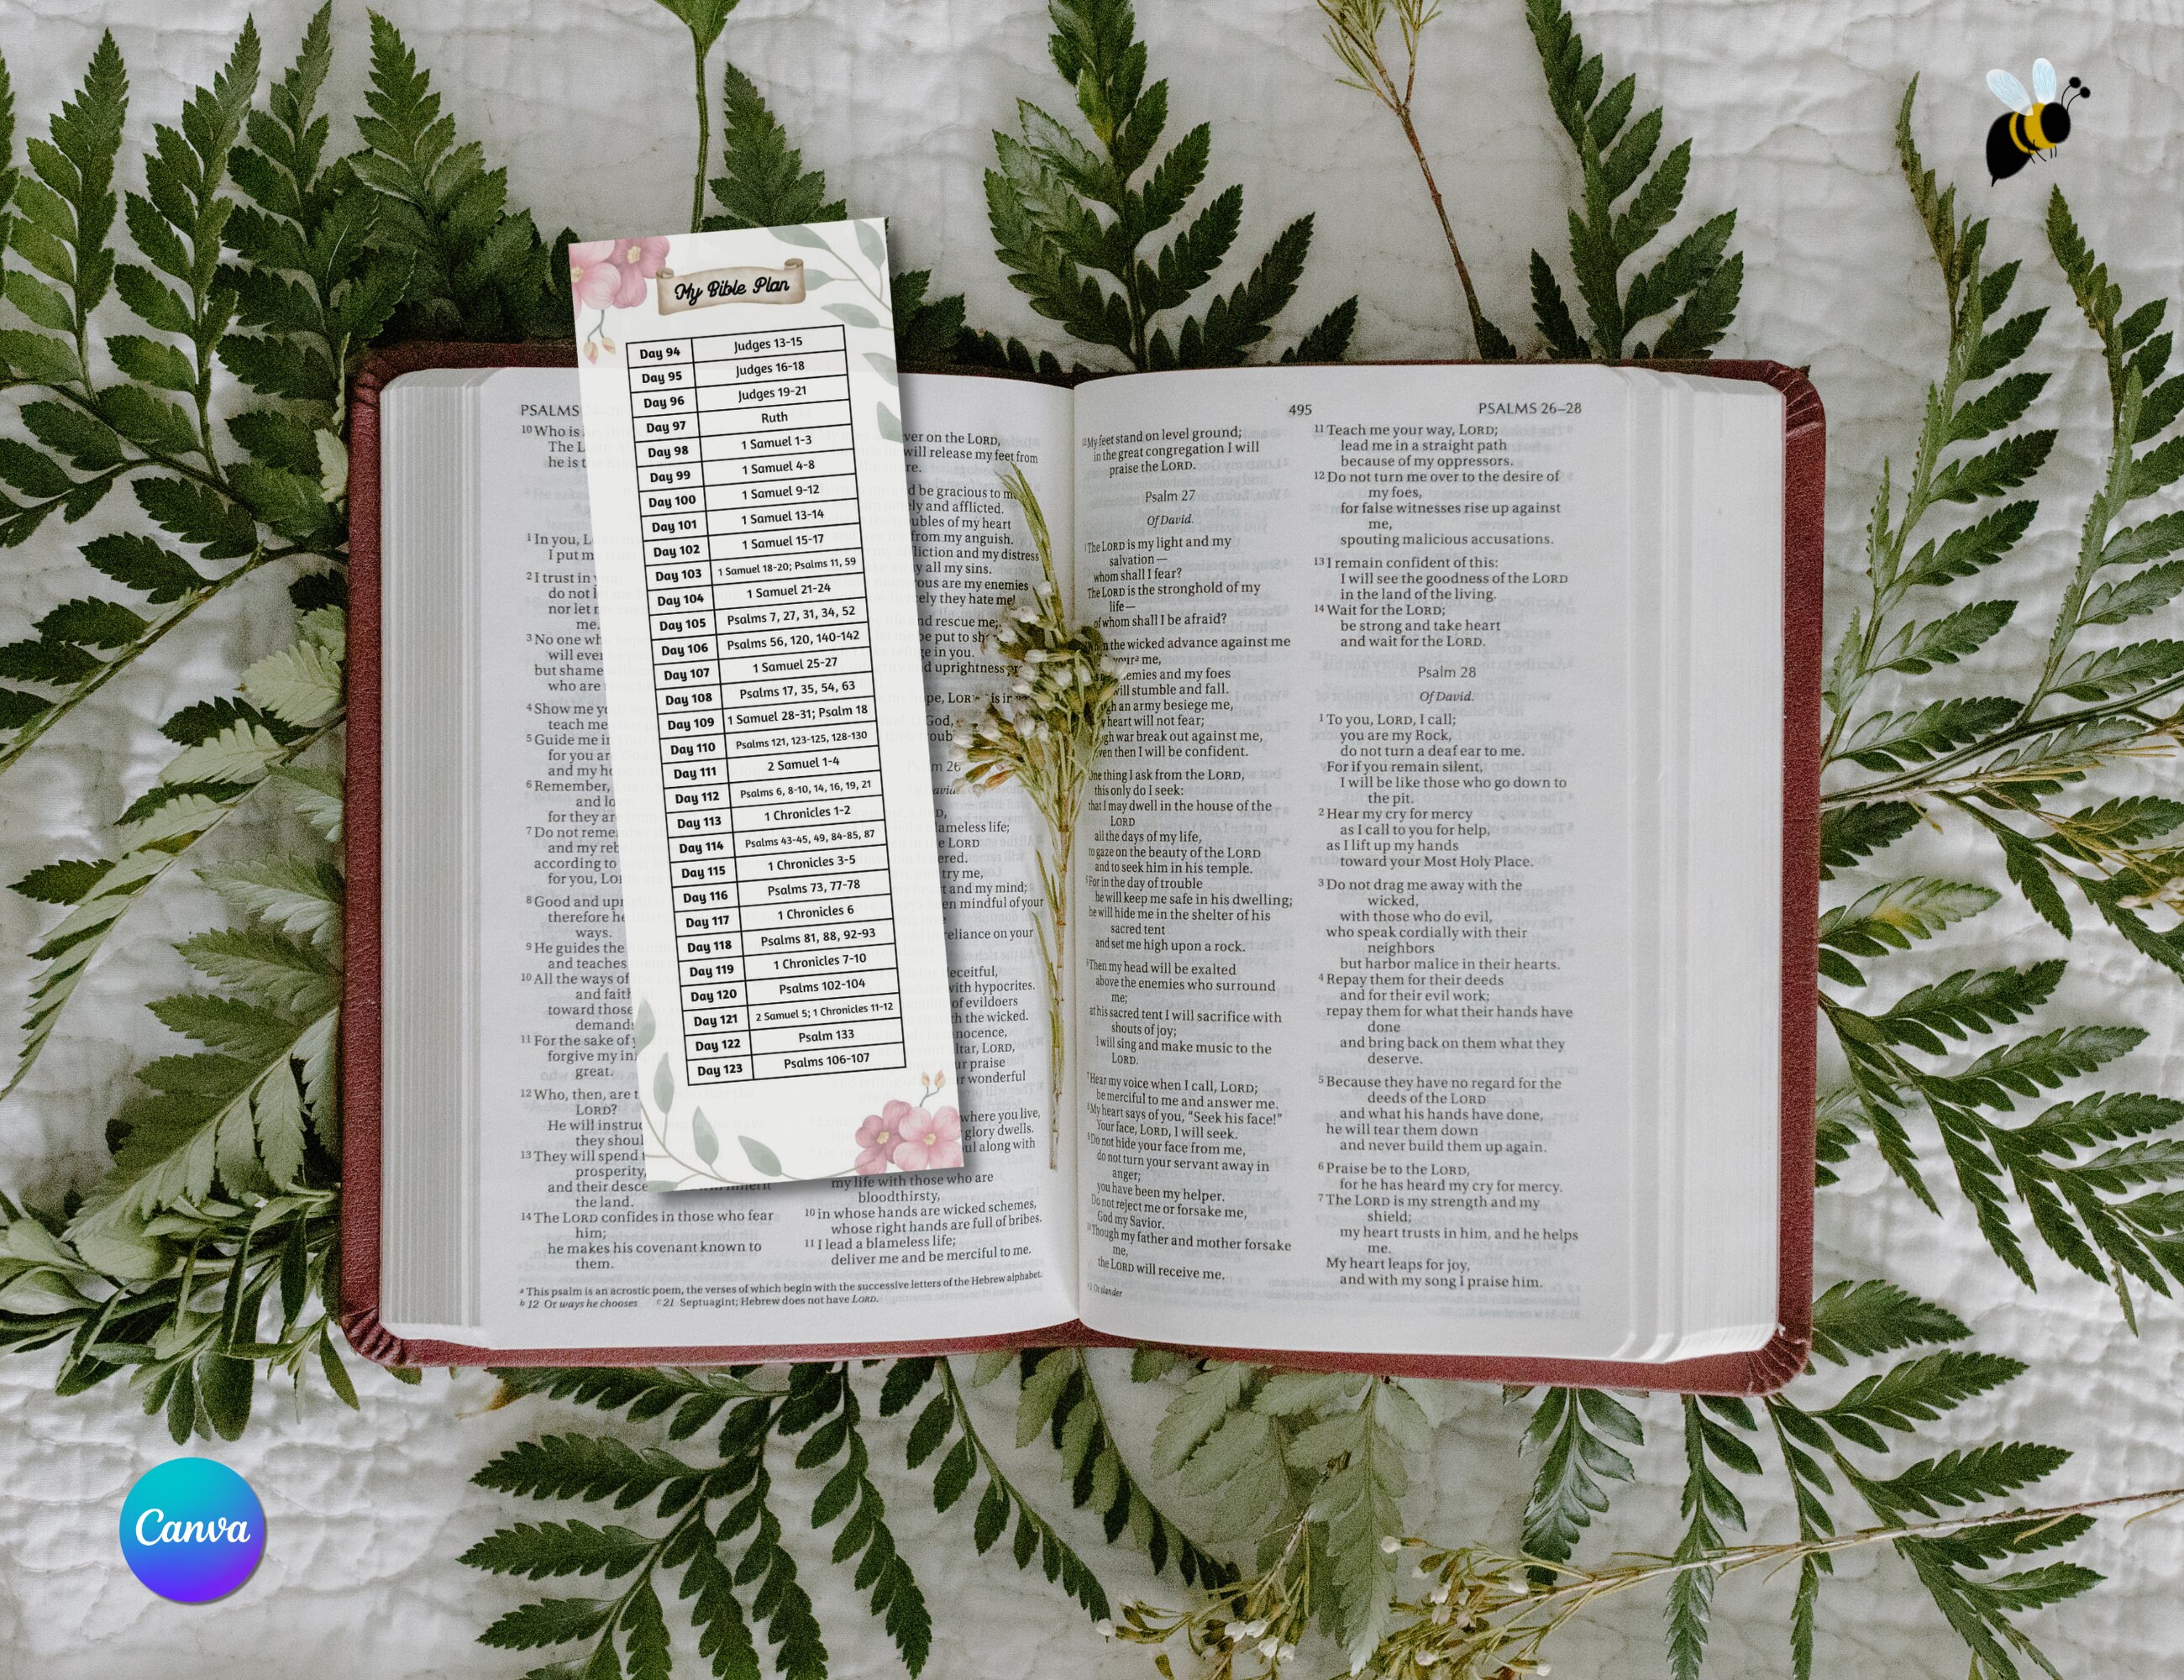 My Bible Plan
Day 94 Judges 13-15
Day 95 Judges 16-18
Day 96 Judges 19-21
Day 97 Ruth
Day 98 1 Samuel 1-3
Day 99 1 Samuel 4-8
Day 100 1 Samuel 9-12
Day 101 1 Samuel 13-14
Day 102 1 Samuel 15-17
Day 103 1 Samuel 18-20; Psalms 11, 59
Day 104 1 Samuel 21-24
Day 105 Psalms 7, 27, 31, 34, 52
Day 106 Psalms 56, 120, 140-142
Day 107 1 Samuel 25-27
Day 108 Psalms 17, 35, 54, 63
Day 109 1 Samuel 28-31; Psalm 18
Day 110 Psalms 121, 123-125, 128-130
Day 111 2 Samuel 1-4
Day 112 Psalms 6, 8-10, 14, 16, 19, 21
Day 113 1 Chronicles 1-2
Day 114 Psalms 43-45, 49, 84-85, 87
Day 115 1 Chronicles 3-5
Day 116 Psalms 73, 77-78
Day 117 1 Chronicles 6
Day 118 Psalms 81, 88, 92-93
Day 119 1 Chronicles 7-10
Day 120 Psalms 102-104
Day 121 2 Samuel 5; 1 Chronicles 11-12
Day 122 Psalm 133
Day 123 Psalms 106-107
PSALMS
10 Who is
The
he is
1 In you,
I put
2 I trust in
do not
nor let
me.
3 No one
will
but shame
who are
4 Show me
teach me
5 Guide me
for you
and my
6 Remember,
and
for they
7 Do not
and my
according to
for you,
8 Good and
therefore he
ways.
9 He guides the
and teaches
10 All the ways of
and
toward those
11 For the sake of
forgive my
great.
12 Who, then, are
LORD?
He will
they
13 They will spend
prosperity,
and their
the land.
14 The LORD confides in those who fear
him;
he makes his covenant known to
them.
on the LORD,
will release my feet from
be gracious to
and afflicted.
of my heart
from my anguish.
and my distress
all my sins.
are my enemies
they hate me!
and rescue me;
be put to
in you.
uprightness
God,
26
blameless life;
LORD
try me,
and my mind;
mindful of your
reliance on your
deceitful,
with hypocrites.
of evildoers
the wicked.
LORD,
praise
wonderful
where you live,
glory dwells.
along with
my life with those who are
bloodthirsty,
10 in whose hands are wicked schemes,
whose right hands are full of bribes.
11 I lead a blameless life;
deliver me and be merciful to me.
a This psalm is an acrostic poem, the verses of which begin with the successive letters of the Hebrew alphabet.
b 12 Or ways he chooses c 21 Septuagint; Hebrew does not have LORD.
495 PSALMS 26–28
12 My feet stand on level ground;
in the great congregation I will
praise the LORD.
Psalm 27
Of David.
1 The LORD is my light and my
salvation —
whom shall I fear?
The LORD is the stronghold of my
life —
of whom shall I be afraid?
the wicked advance against me
me,
enemies and my foes
will stumble and fall.
an army besiege me,
heart will not fear;
war break out against me,
even then I will be confident.
One thing I ask from the LORD,
this only do I seek:
that I may dwell in the house of the
LORD
all the days of my life,
to gaze on the beauty of the LORD
and to seek him in his temple.
5 For in the day of trouble
he will keep me safe in his dwelling;
he will hide me in the shelter of his
sacred tent
and set me high upon a rock.
6 Then my head will be exalted
above the enemies who surround
me;
at his sacred tent I will sacrifice with
shouts of joy;
I will sing and make music to the
LORD.
7 Hear my voice when I call, LORD;
be merciful to me and answer me.
8 My heart says of you, “Seek his face!”
Your face, LORD, I will seek.
9 Do not hide your face from me,
do not turn your servant away in
anger;
you have been my helper.
Do not reject me or forsake me,
God my Savior.
10 Though my father and mother forsake
me,
the LORD will receive me.
a 2 Or slander
11 Teach me your way, LORD;
lead me in a straight path
because of my oppressors.
12 Do not turn me over to the desire of
my foes,
for false witnesses rise up against
me,
spouting malicious accusations.
13 I remain confident of this:
I will see the goodness of the LORD
in the land of the living.
14 Wait for the LORD;
be strong and take heart
and wait for the LORD.
Psalm 28
Of David.
1 To you, LORD, I call;
you are my Rock,
do not turn a deaf ear to me.
For if you remain silent,
I will be like those who go down to
the pit.
2 Hear my cry for mercy
as I call to you for help,
as I lift up my hands
toward your Most Holy Place.
3 Do not drag me away with the
wicked,
with those who do evil,
who speak cordially with their
neighbors
but harbor malice in their hearts.
4 Repay them for their deeds
and for their evil work;
repay them for what their hands have
done
and bring back on them what they
deserve.
5 Because they have no regard for the
deeds of the LORD
and what his hands have done,
he will tear them down
and never build them up again.
6 Praise be to the LORD,
for he has heard my cry for mercy.
7 The LORD is my strength and my
shield;
my heart trusts in him, and he helps
me.
My heart leaps for joy,
and with my song I praise him.
Canva